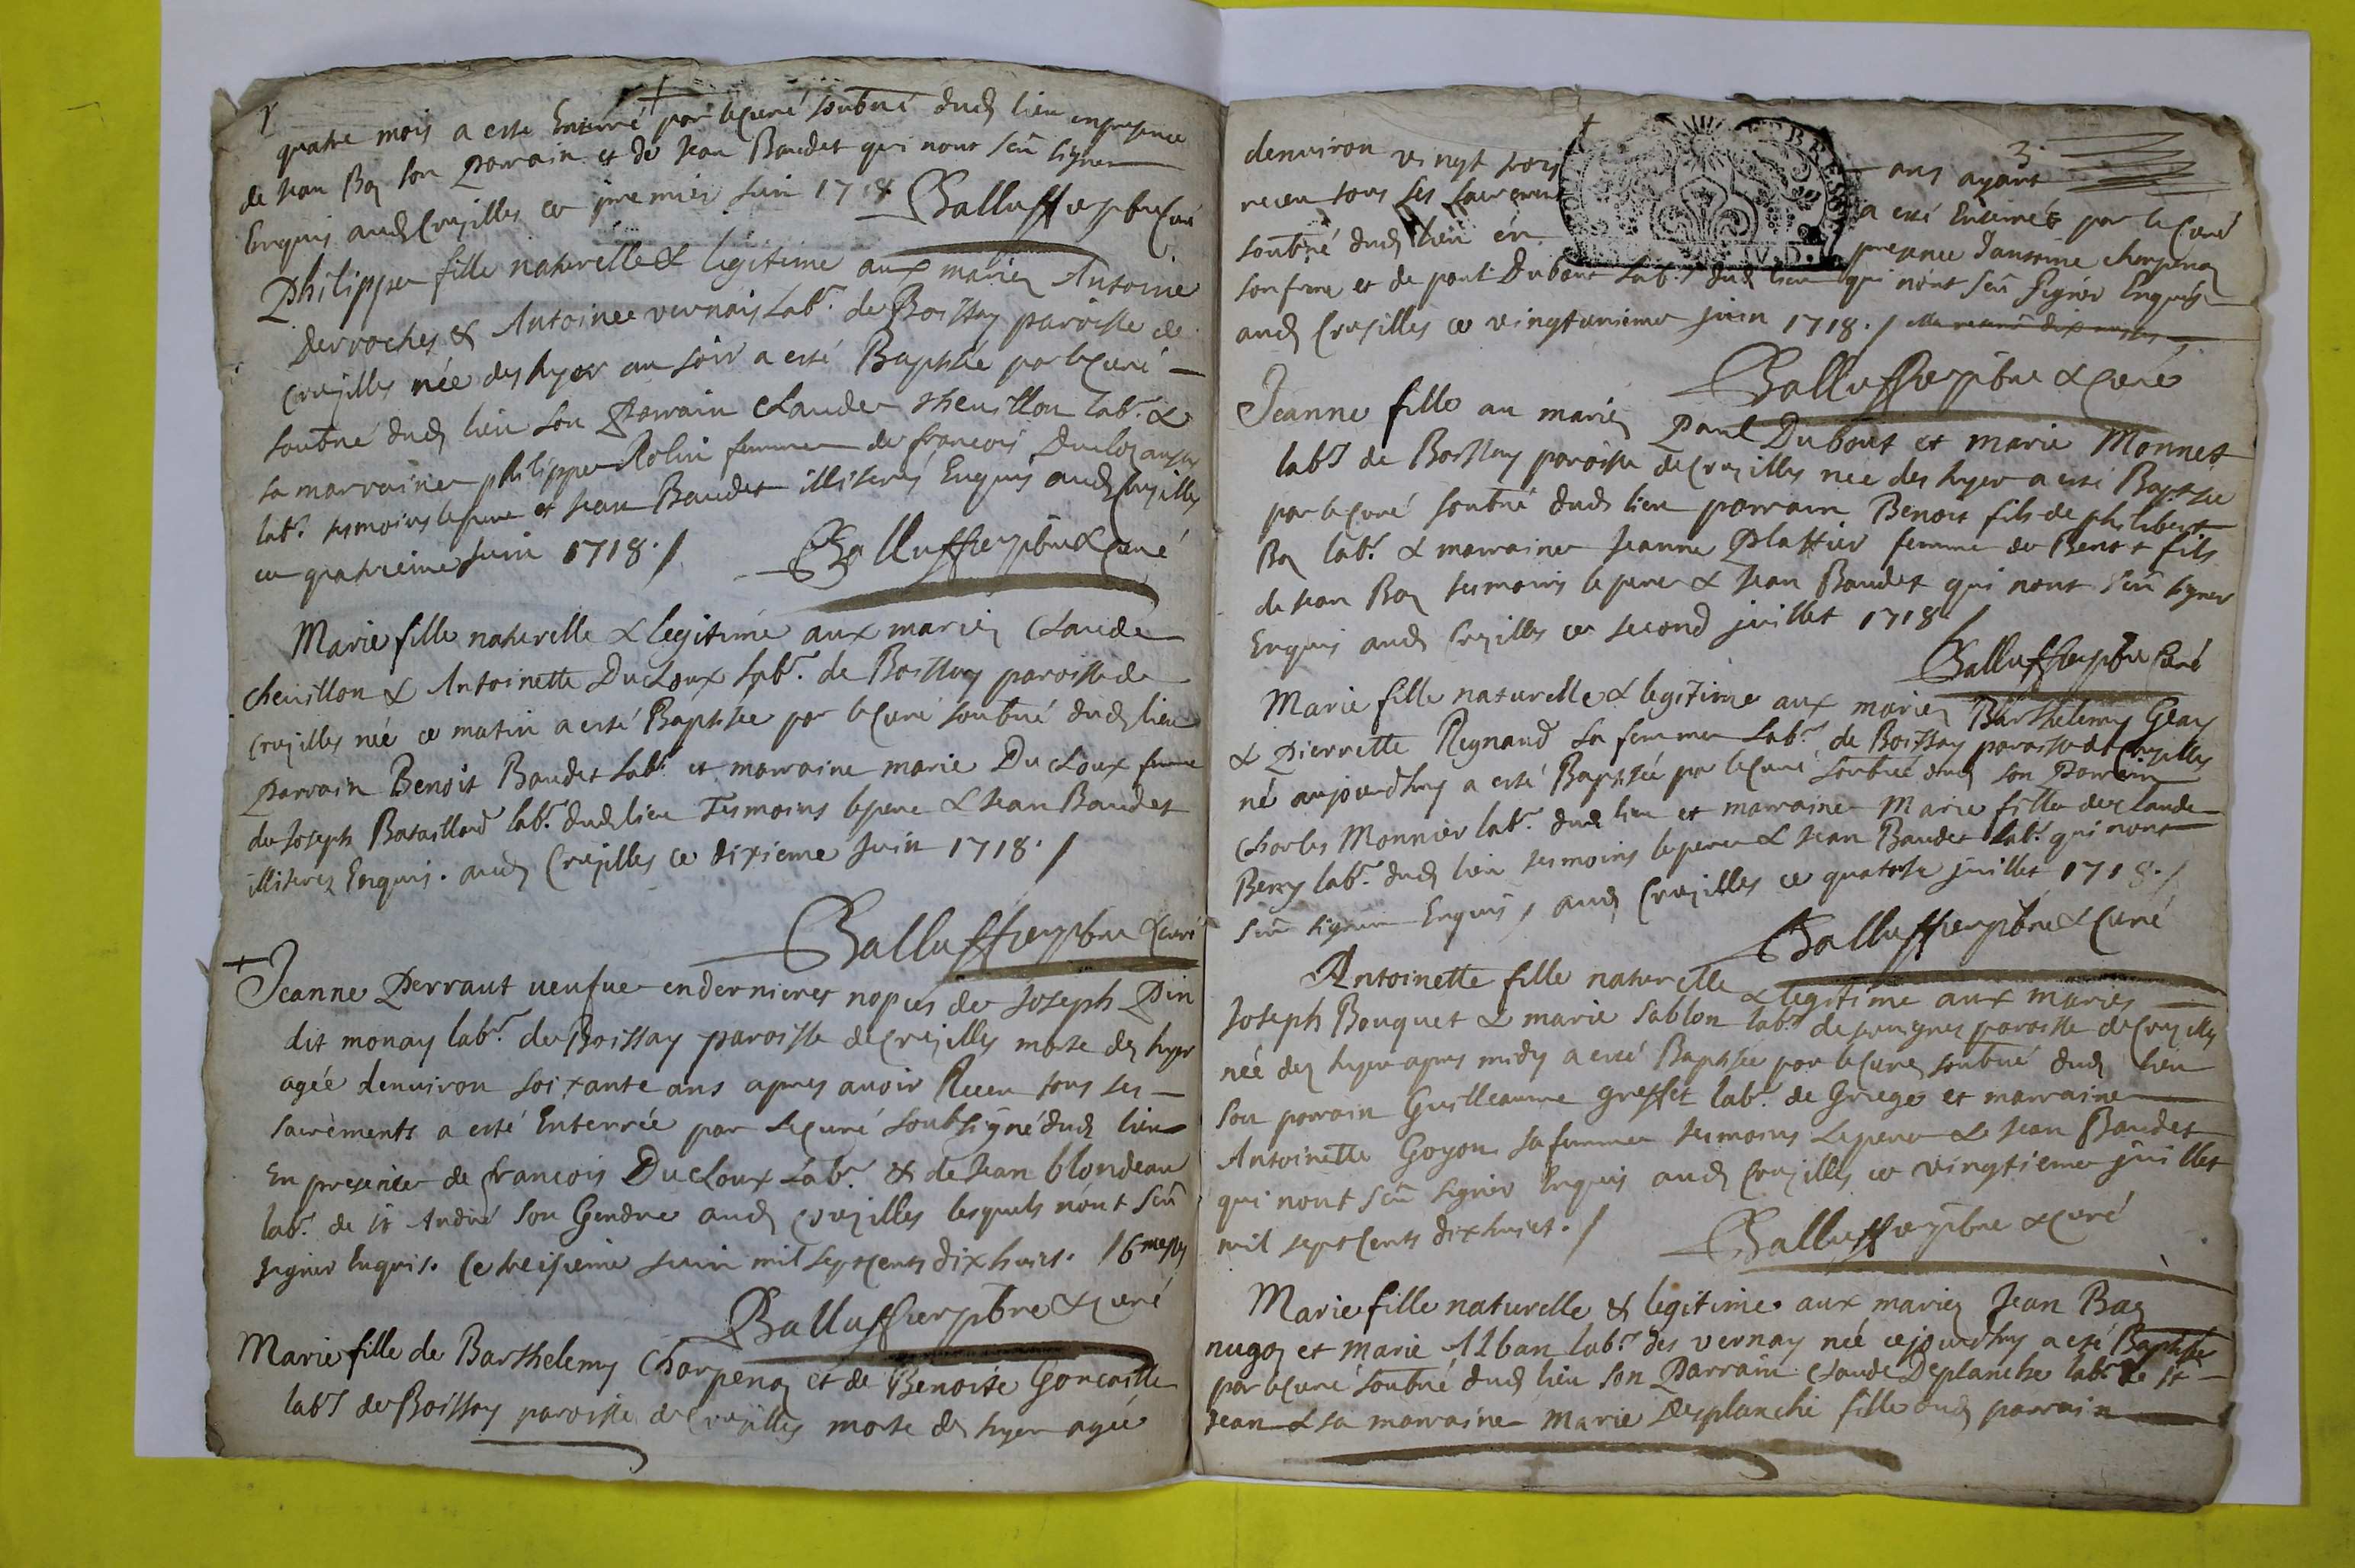 quatre mois a esté Enterré par le Curé soubné dudi lieu en presence
de Jean Bay son Parrain et de Jean Baudet qui nont sçû signer
Enquis audi Crujilles ce premier Juin 1718
Balluffier pbre Curé
Philippe fille naturelle & legitime aux mariez Antoine
Derroches & Antoinee vernay labr. de Boissay paroisse de
Crujilles née des hyer au soir a esté Baptisée par le Curé
soubné dudi lieu son Parrain Claude cheuillon labr. &
sa marraine philippe Rolin femme de francois Ducloz aussy
labr. tesmoins le pere et Jean Baudet illiterés Enquis audi Crujilles
ce quatrieme Juin 1718. /
Balluffier pbre & Curé
Marie fille naturelle & legitime aux mariez Claude
cheuillon & Antoinette DuCloux labr. de Boissay paroisse de
Crujilles née ce matin a esté Baptisée par le Curé soubné dudi lieu
Parrain Benoit Baudet labr. et marraine marie DuCloux femme
de Joseph Bataillard labr. dudi lieu Tesmoins le pere & Jean Baudet
illiterez Enquis. audi Crujilles ce dixieme Juin 1718. /
Balluffier pbre & Curé
Jeanne Perraut ueufue en dernieres nopces de Joseph Pin
dit monay labr. de Boissay paroisse de Crujilles morte dez hyer
agée denuiron soixante ans apres auoir Receu tous ses
sacrements a esté Enterrée par le Curé soubsigné dudi lieu
En presence de francois DuCloux Labr. & de Jean blondeau
labr. de st André son Gendre audi Crujilles lesquels nont sçû
signer Enquis. Ce treisieme Juin mil septcents dix huict. / 6 messes
Balluffier pbre & Curé
Marie fille de Barthelemy Charpenay et de Benoite Goncaitte
labrs de Boissay paroisse de Crujilles morte dez hyer agée
3
denuiron vingt trois ans ayant
receu tous ses sacrements a esté Enterrée par le Curé
soubné dudi lieu en presence Dantoine charpenay
son frere et de paul Dubout labrs dudi lieu qui nont sçû signer Enquis
audi Crujilles ce vingtunieme juin 1718. /
Balluffier pbre & Curé
Jeanne fille au mariez Paul Dubout et marie Monnet
labrs de Boissay paroisse de Crujilles née des hyer a esté Baptisée
par le Curé soubné dudi lieu parrain Benoit fils de philibert
Bay labr. & marraine Jeanne Plattier femme de Benoit fils
de Jean Bay tesmoins le pere & Jean Baudet qui nont sçû signer
Enquis audi Crujilles ce second juillet 1718 /
Balluffier pbre Curé
Marie fille naturelle & legitime aux mariez Barthelemy Geay
& Pierrette Regnaud sa femme labrs de Boissay paroisse de Crujilles
né aujourdhuy a esté Baptisée par le Curé soubné dudi son Parrain
Charles Monnier labr. dudi lieu et marraine Marie fille de Claude
Berry labr. dudi lieu tesmoins le pere & Jean Baudet labr. qui nont
sçû signer Enquis, audi Crujilles ce quatorze juillet 1718. /
Balluffier pbre & Curé
Antoinette fille naturelle & legitime aux mariés
Joseph Bouquet & marie Sablon labrs de paroisse de Crujilles
née dez hyer apres midy a esté Baptisée par le Curé soubné dudi lieu
son parrain Guilleaume Greffet labr. de Griege et marraine
Antoinette Goyon sa femme tesmoins le pere & Jean Baudet
qui nont sçû signer Enquis audi Crujilles ce vingtieme juillet
mil septcents dixhuict. /
Balluffier pbre & Curé
Marie fille naturelle & legitime aux mariez Jean Bay
nugoz et marie Alban labrs des vernay née cejourdhuy a esté Baptisée
par le Curé soubné dudi lieu son Parrain Claude Desplanche labr de st
Jean & sa marraine Marie Desplanche fille dudi parrain